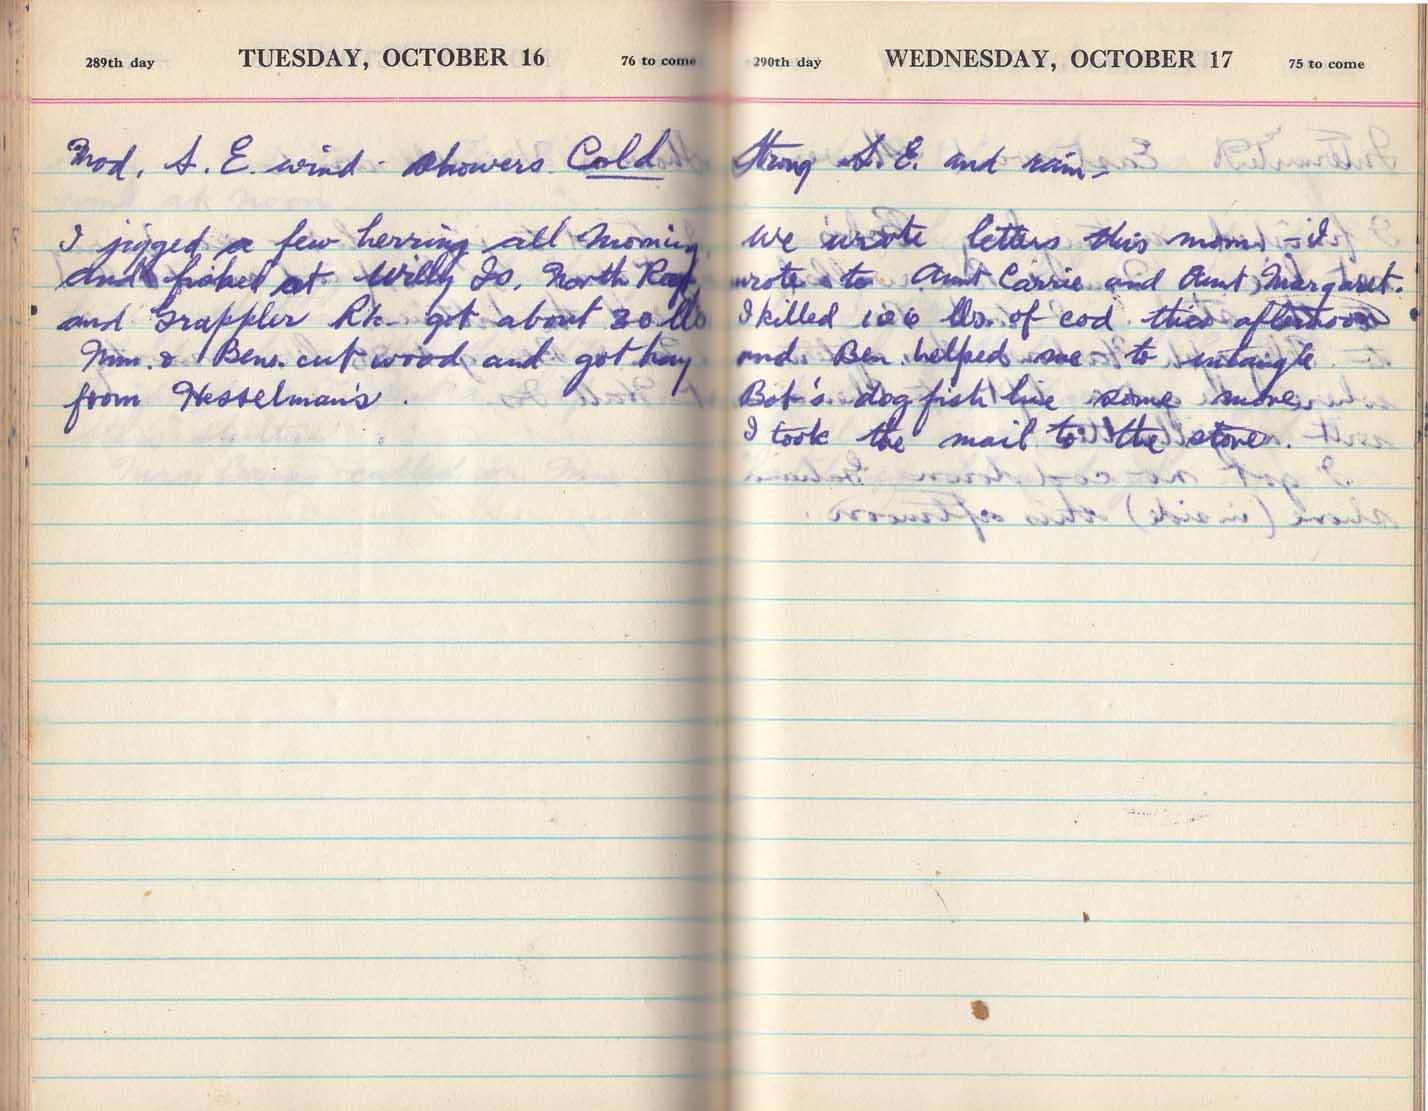 289th day TUESDAY, OCTOBER 16 76 to come
Mod. S. E. wind - showers Cold
I jigged a few herring all morning
and fished at Willy Is, North Reef
and Grappler Rk - got about 30 lbs
Mm. & Ben. cut wood and got hay
from Hesselman's.
290th day WEDNESDAY, OCTOBER 17 75 to come
Strong S. E. and rain -
We wrote letters this morn. - I
wrote to Aunt Carrie and Aunt Margaret.
I killed 106 lbs. of cod this afternoon
and Ben helped me to untangle
Bob's dogfish line some more.
I took the mail to the store.